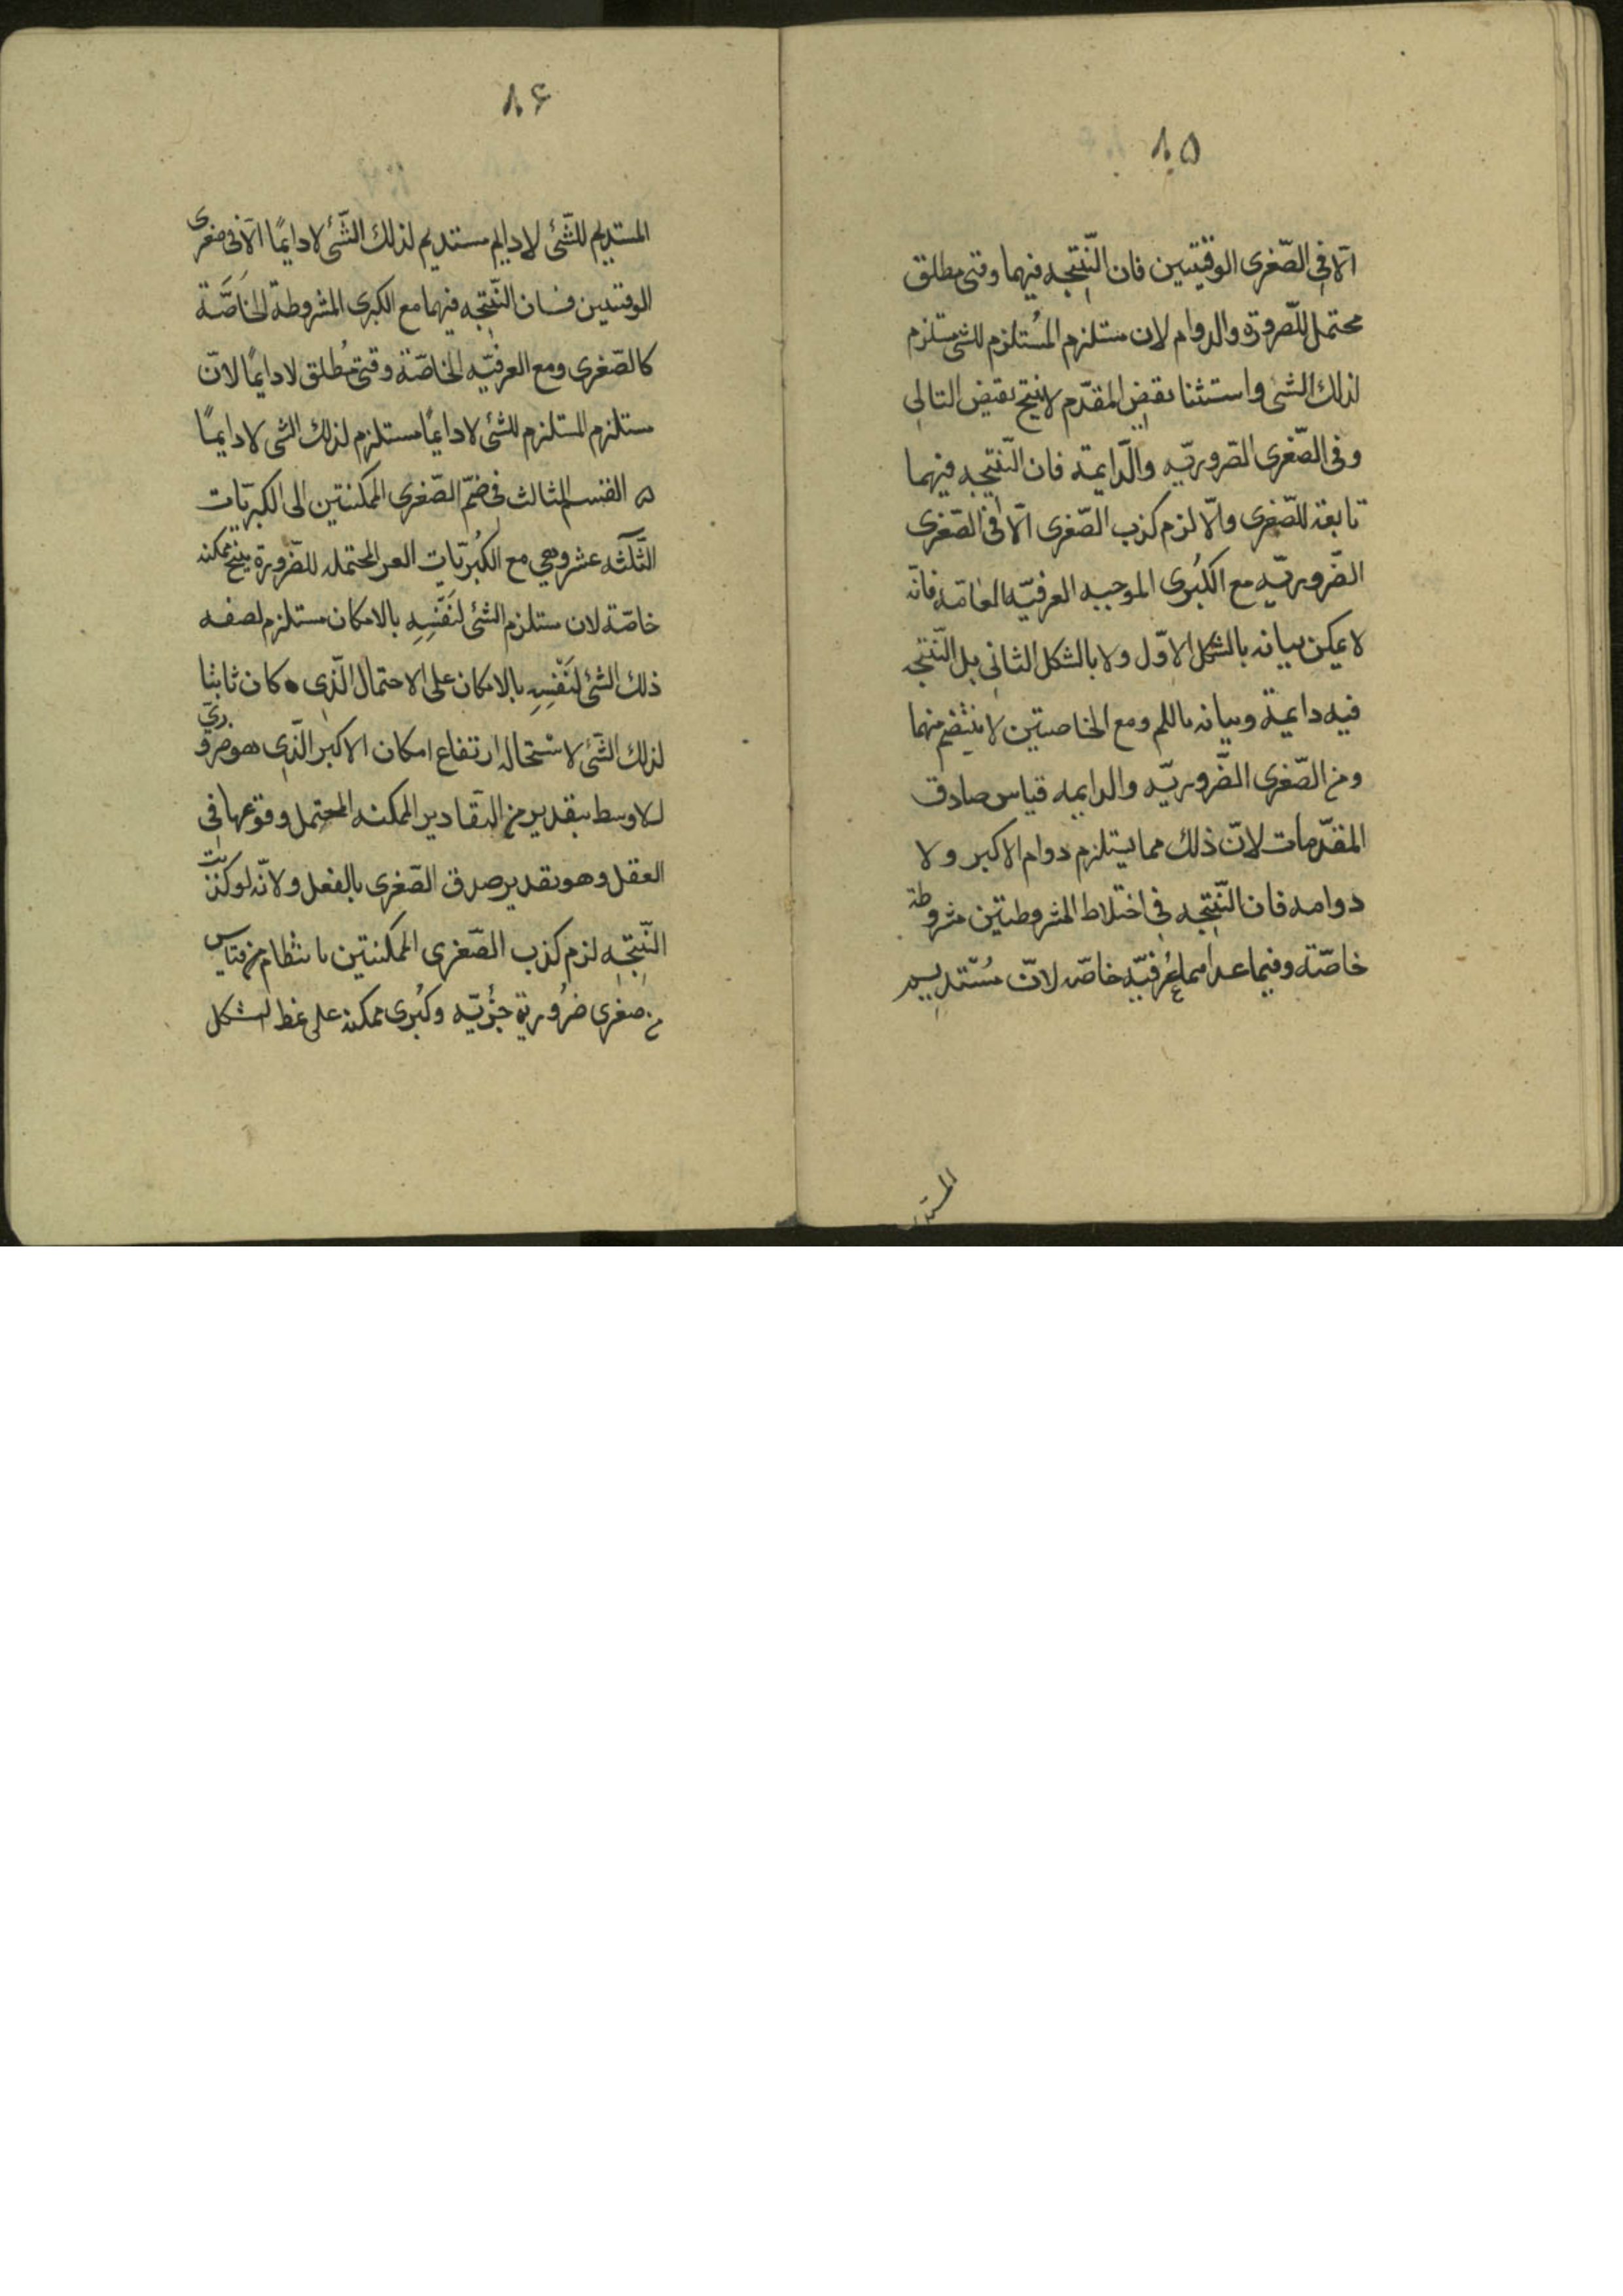 ٨٥
الّا فی الصّغری الوقتیتین فان النّتیجه فیهما وقتی مطلق
محتمل للضّرورة والدوام لان مستلزم المُستلزم للشی مستلزم
لذلك الشی واستثنا نقیض المقدّم لا ینتج نقیض التالی
وفی الصّغری الضّروریّه والدّایمة فان النّتیجه فیهما
تابعة للصّغری والّا لزم کذب الصّغری الّا فی الصّغری
الضّروریّه مع الکُبری الموجبه العرفیّه العامّه فانّه
لا یمکن بیانه بالشکل الاوّل ولا بالشکل الثانی بل النّتیجه
فیه دایمة وبیانه باللم ومع الخاصتین لا ینتضم منهما
ومن الصّغری الضّروریّه والدایمه قیاس صادق
المقدّمات لانّ ذلك مما یستلزم دوام الاکبر ولا
دوامه فان النّتیجه فی اختلاط المشروطتین مشروطة
خاصّة وفیما عداهما عُرفیّه خاصّه لانّ مُسْتدیم
المستدیم
٨۶
المستدیم للشّئ لا دایم مستدیم لذلك الشّئ لا دایمًا الّا فی صغری
الوقتیین فان النّتیجه فیهما مع الکبری المشروطة الخَاصَّة
کالصّغری ومع العرفیّه الخاصّة وقتی مُطلق لا دایمًا لانّ
مستلزم المستلزم للشئ لا دایمًا مستلزم لذلك الشی لا دایمًا
ه القسم الثالث فی ضمّ الصّغری الممکنتین الی الکبریّات
الثّلثه عشر وهی مع الکُبریّات الغیر المحتمله للضّرورة ینتج ممکنه
خاصّة لان مستلزم الشئ لنَفْسِهِ بالامکان مستلزم لصفه
ذلك الشئ لنَفْسِهِ بالامکان علی الاحتمال الّذی کان ثابتا
لذلك الشّئ لاستحاله ارتفاع امکان الاکبر الّذی هو ضروریّ
للاوسط بتقدیر من التقادیر الممکنه المحتمل وقوعها فی
العقل وهو تقدیر صدق الصّغری بالفعل ولانّه لو کذبت
النّتیجه لزم کذب الصّغری الممکنتین بانتظام من قیاس
من صغری ضرُوریة جزْئیّه وکُبری ممکنه علی نمط الشکل